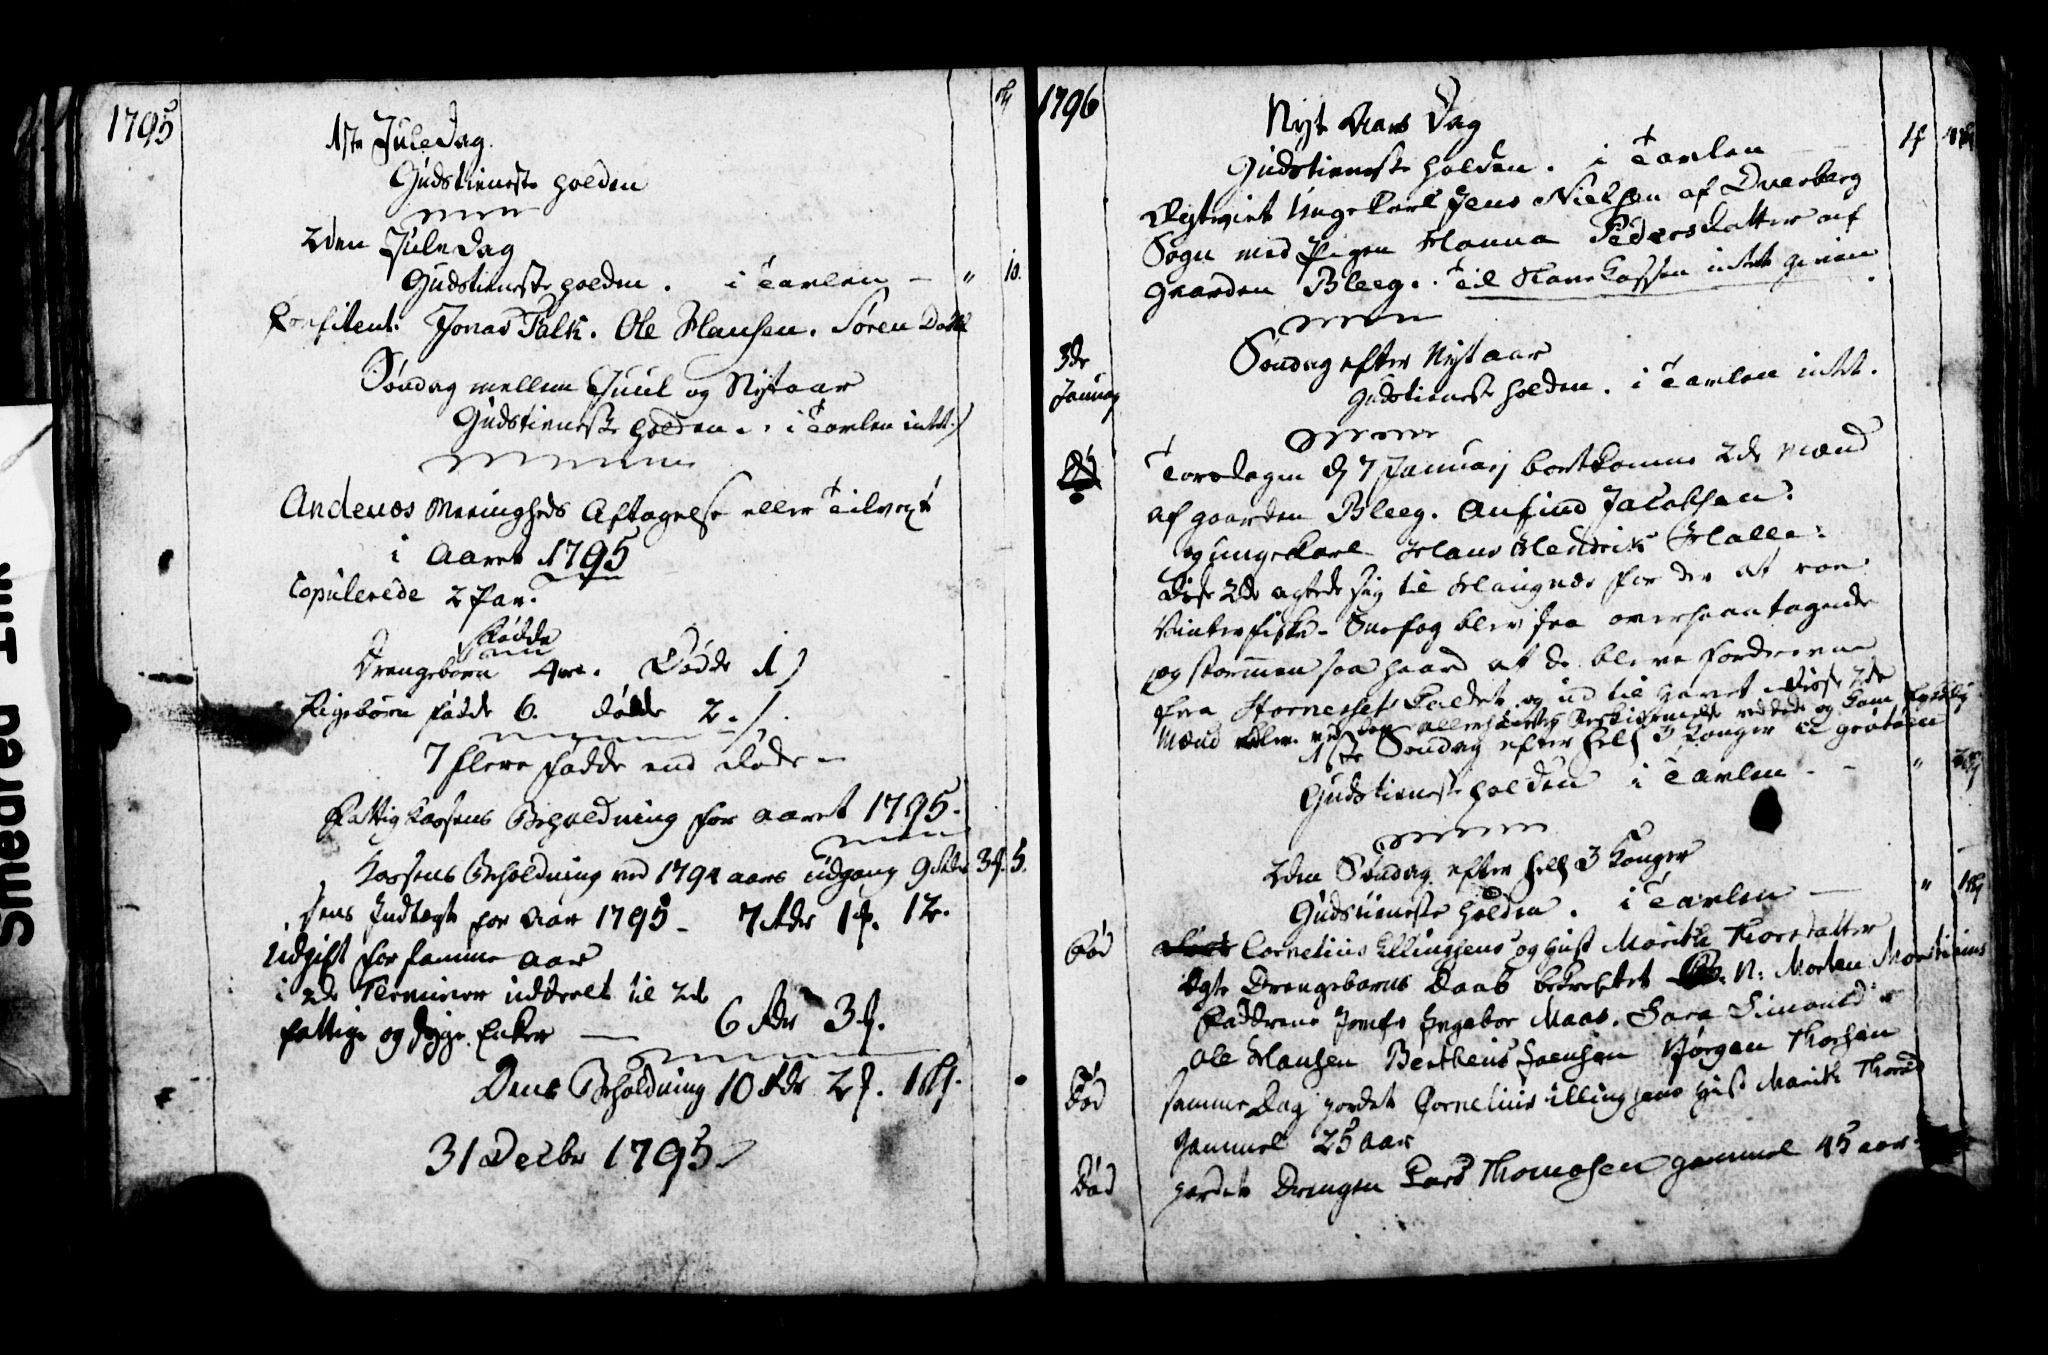 1795
1ste Juledag.
Gudstieneste holden
2den Juledag
Gudstieneste holden. i Tavlen - " 10.
Confitent: Jonas Falk. Ole Hansen. Søren Dahl
Søndag mellem Juul og Nytaar
Gudstieneste holden. i Tavlen intet.
Andenæs Meenigheds Aftagelse eller Tilvext
i Aaret 1795
Copulerede 2 Par.
Drengebørn fødde 4re. Dødde 1
Pigebørn fødde 6. dødde 2.
7 flere fødde end døde
Fattig Kassens Beholdning for aaret 1795.
Kassens Beholdning ved 1794 aars udgang 9 Rdr 3 ƒ. 5.
Dens Indtægt for Aar 1795 - 7 Rdr 1 ƒ. 12.
Udgift for samme aar
i 2de Terminer uddeelt til
fattige og Enker - 6 Rdr 3 ƒ.
Dens Beholdning 10 Rdr 2 ƒ. 1 ß.
31 Decbr 1795
1796
Nyt Aars Dag
Gudstieneste holden. i Tavlen
Egteviet Ungekarl Jens Nielsen af Dverberg
Sogn med Pigen Hanna Pedersdatter af
Gaarden Bleeg. Til Kassen intet given
3de
Januarj
Søndag efter Nytaar
Gudstieneste holden. i Tavlen intet.
Torsdagen d 7 Januarj bortkomme 2de Mænd
af gaarden Bleeg. Anfind Jacobsen.
og ungekarl Hans Hendrik Halle:
disse 2de agtede sig til Haugnæs for der at roe
Vinterfiske - Snefog blev saa overhaantagende
og stormen saa haard at de bleve fordrevne
fra og ud til Havet disse 2de
Mænd
1ste Søndag efter hell 3 Konger
Gudstieneste holden i Tavlen - "
2den Søndag efter hell 3 Konger
Gudstieneste holden. i Tavlen - "
Fød
Cornelius Ellingsens og Hust Marith Thorsdatter
Egte Drengebarns Daab bekræftet N: Morten Mortinius
Faddrene Jomfr Ingebor Maas. Sara Simonsd:r
Ole Hansen Bertheus Jørgen Thorsen
Død
samme Dag jordet Cornelius Ellingsens Hust Marith Thorsd
Gammel 25 aar
Død
jordet Drengen Lars Thomasen gammel 45 aar
Smebred på TIW